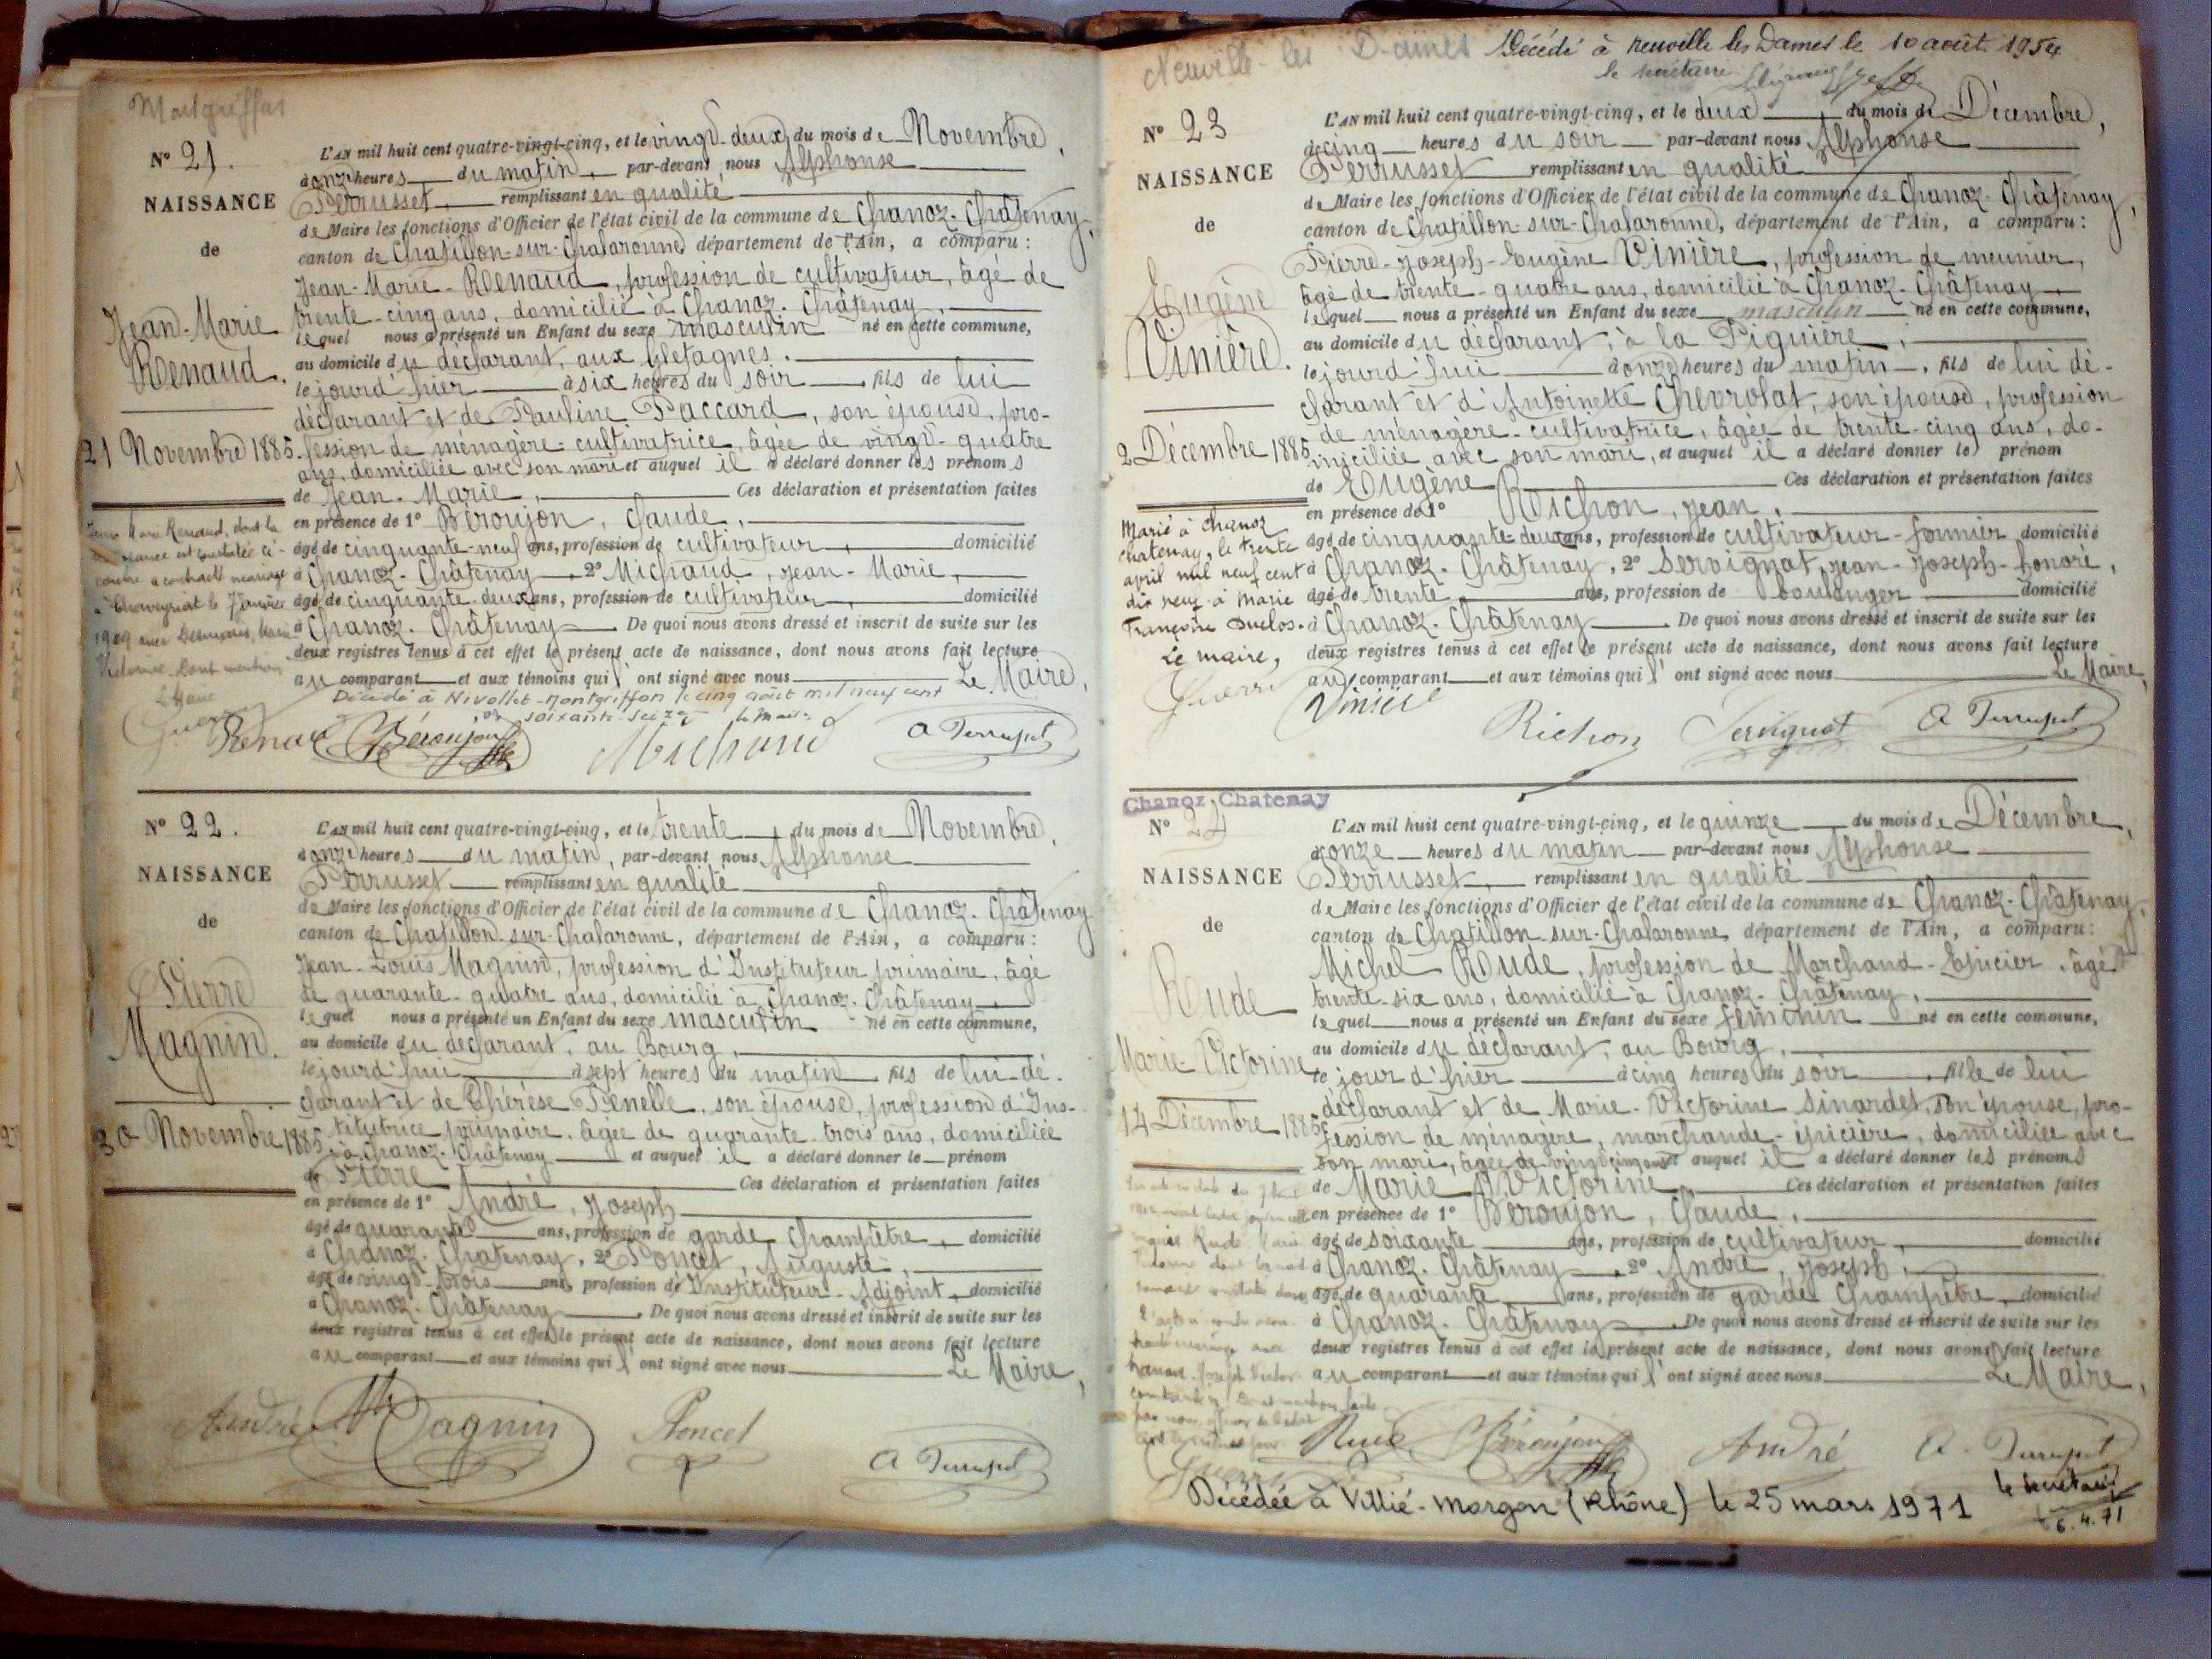 Montgriffon
N° 21.
NAISSANCE
de
Jean-Marie
Renaud.
21 Novembre 1885.
L'AN mil huit cent quatre-vingt-cinq, et le vingt-deux du mois de Novembre,
à onze heures du matin, par-devant nous Alphonse
Perrusset, remplissant en qualité
de Maire les fonctions d'Officier de l'état civil de la commune de Chanoz-Châtenay,
canton de Chatillon-sur-Chalaronne, département de l'Ain, a comparu:
Jean-Marie-Renaud, profession de cultivateur, âgé de
trente-cinq ans, domicilié à Chanoz-Châtenay,
lequel nous a présenté un Enfant du sexe masculin né en cette commune,
au domicile du déclarant, aux
le jourd'hier à six heures du soir, fils de lui
déclarant et de Pauline Paccard, son épouse, pro-
fession de ménagère-cultivatrice, âgée de vingt-quatre
ans, domiciliée avec son mari et auquel il a déclaré donner les prénoms
de Jean-Marie, Ces déclaration et présentation faites
en présence de 1° Béroujon, Claude,
âgé de cinquante-neuf ans, profession de cultivateur, domicilié
à Chanoz-Châtenay, 2° Michaud, Jean-Marie,
âgé de cinquante-deux ans, profession de cultivateur, domicilié
à Chanoz-Châtenay. De quoi nous avons dressé et inscrit de suite sur les
deux registres tenus à cet effet le présent acte de naissance, dont nous avons fait lecture
au comparant et aux témoins qui l'ont signé avec nous Le Maire,
Jean Marie Renaud, dont la
naissance est constatée ci-
contre a contracté mariage
à Chaveyriat le Janvier
1909 avec
Victorine dont mention
Le Maire
Guerri
Décédé à Nivollet-Montgriffon le cinq août mil neuf cent
soixante seize le Maire
Renaud Béroujon Michaud A Perrusset
N° 22.
NAISSANCE
de
Pierre
Magnin.
30 Novembre 1885
L'AN mil huit cent quatre-vingt-cinq, et le trente, du mois de Novembre,
à onze heures du matin, par-devant nous Alphonse
Perrusset remplissant en qualité
de Maire les fonctions d'Officier de l'état civil de la commune de Chanoz-Châtenay
canton de Chatillon-sur-Chalaronne, département de l'Ain, a comparu:
Jean-Louis Magnin, profession d'Instituteur primaire, âgé
de quarante-quatre ans, domicilié à Chanoz-Châtenay,
lequel nous a présenté un Enfant du sexe masculin né en cette commune,
au domicile du déclarant, au Bourg,
le jourd'hui à sept heures du matin, fils de lui dé-
clarant et de Thérèse Penelle, son épouse, profession d'Ins-
titutrice primaire, âgée de quarante-trois ans, domiciliée
à Chanoz-Châtenay et auquel il a déclaré donner le prénom
de Pierre Ces déclaration et présentation faites
en présence de 1° André, Joseph
âgé de quarante ans, profession de garde champêtre, domicilié
à Chanoz-Chatenay, 2° Poncet, Auguste,
âgé de vingt-trois ans, profession de Instituteur-Adjoint, domicilié
à Chanoz-Châtenay. De quoi nous avons dressé et inscrit de suite sur les
deux registres tenus à cet effet le présent acte de naissance, dont nous avons fait lecture
au comparant et aux témoins qui l'ont signé avec nous Le Maire,
André Magnin Poncet A Perrusset
Neuville-les Dames Décédé à neuville les Dames le 10 août 1954
le secrétaire
N° 23
NAISSANCE
de
Eugène
Vinière.
2 Décembre 1885
L'AN mil huit cent quatre-vingt-cinq, et le deux, du mois de Décembre,
à cinq heures du soir par-devant nous Alphonse
Perrusset remplissant en qualité
de Maire les fonctions d'Officier de l'état civil de la commune de Chanoz-Châtenay,
canton de Chatillon-sur-Chalaronne, département de l'Ain, a comparu:
Pierre-Joseph-Eugène Vinière, profession de meunier,
âgé de trente-quatre ans, domicilié à Chanoz-Châtenay,
lequel nous a présenté un Enfant du sexe masculin né en cette commune,
au domicile du déclarant, à la Piguière,
le jourd'hui à onze heures du matin, fils de lui dé-
clarant et d'Antoinette Chevrolat, son épouse, profession
de ménagère-cultivatrice, âgée de trente-cinq ans, do-
miciliée avec son mari, et auquel il a déclaré donner le prénom
de Eugène Ces déclaration et présentation faites
en présence de 1° Richon, Jean,
âgé de cinquante-deux ans, profession de cultivateur-fermier domicilié
à Chanoz-Châtenay, 2° Servignat, Jean-Joseph-honoré,
âgé de trente ans, profession de boulanger domicilié
à Chanoz-Châtenay. De quoi nous avons dressé et inscrit de suite sur les
deux registres tenus à cet effet le présent acte de naissance, dont nous avons fait lecture
au comparant et aux témoins qui l'ont signé avec nous Le Maire,
Marié à chanoz
chatenay, le trente
april mil neuf cent
dix neuf à Marie
Françoise Duclos.
Le maire,
Guerri
Vinière Richon Servignat A Perrusset
Chanoz-Chatenay
N° 24
NAISSANCE
de
Rude
Marie-Victorine
14 Décembre 1885
L'AN mil huit cent quatre-vingt-cinq, et le quinze du mois de Décembre,
à onze heures du matin par-devant nous Alphonse
Perrusset, remplissant en qualité
de Maire les fonctions d'Officier de l'état civil de la commune de Chanoz-Châtenay,
canton de Chatillon-sur-Chalaronne, département de l'Ain, a comparu:
Michel Rude, profession de Marchand-Epicier, âgé
trente-six ans, domicilié à Chanoz-Châtenay,
lequel nous a présenté un Enfant du sexe féminin né en cette commune,
au domicile du déclarant, au Bourg,
le jour d'hier à cinq heures du soir, fille de lui
déclarant et de Marie-Victorine Sinardet, son épouse, pro-
fession de ménagère, marchande-épicière, domiciliée avec
son mari, âgée de vingt cinq ans et auquel il a déclaré donner les prénoms
de Marie Victorine Ces déclaration et présentation faites
en présence de 1° Béroujon, Claude,
âgé de soixante ans, profession de cultivateur, domicilié
à Chanoz-Châtenay, 2° André, Joseph,
âgé de quarante ans, profession de garde Champêtre, domicilié
à Chanoz-Châtenay. De quoi nous avons dressé et inscrit de suite sur les
deux registres tenus à cet effet le présent acte de naissance, dont nous avons fait lecture
au comparant et aux témoins qui l'ont signé avec nous Le Maire,
Rude Béroujon André A. Perrusset
Guerri
Décédée à Villié-Morgon (Rhône) le 25 mars 1971
le secrétaire
6.4.71